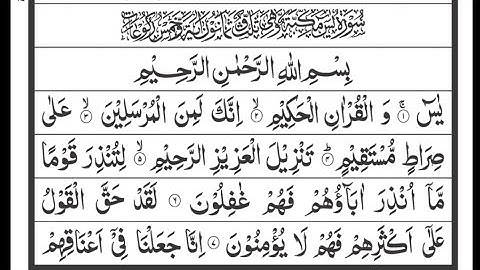 سورة يس مكية وهي ثلاث وثمانون آية وخمس ركوعات
بِسْمِ اللهِ الرَّحْمٰنِ الرَّحِيْمِ
يٰسٓ ﴿۱﴾ وَ الْقُرْاٰنِ الْحَكِيْمِ ﴿۲﴾ اِنَّكَ لَمِنَ الْمُرْسَلِيْنَ ﴿۳﴾ عَلٰى
صِرَاطٍ مُّسْتَقِيْمٍ ﴿۴﴾ تَنْزِيْلَ الْعَزِيْزِ الرَّحِيْمِ ﴿۵﴾ لِتُنْذِرَ قَوْمًا
مَّاۤ اُنْذِرَ اٰبَآؤُهُمْ فَهُمْ غٰفِلُوْنَ ﴿۶﴾ لَقَدْ حَقَّ الْقَوْلُ
عَلٰۤى اَكْثَرِهِمْ فَهُمْ لَا يُؤْمِنُوْنَ ﴿۷﴾ اِنَّا جَعَلْنَا فِيْۤ اَعْنَاقِهِمْ